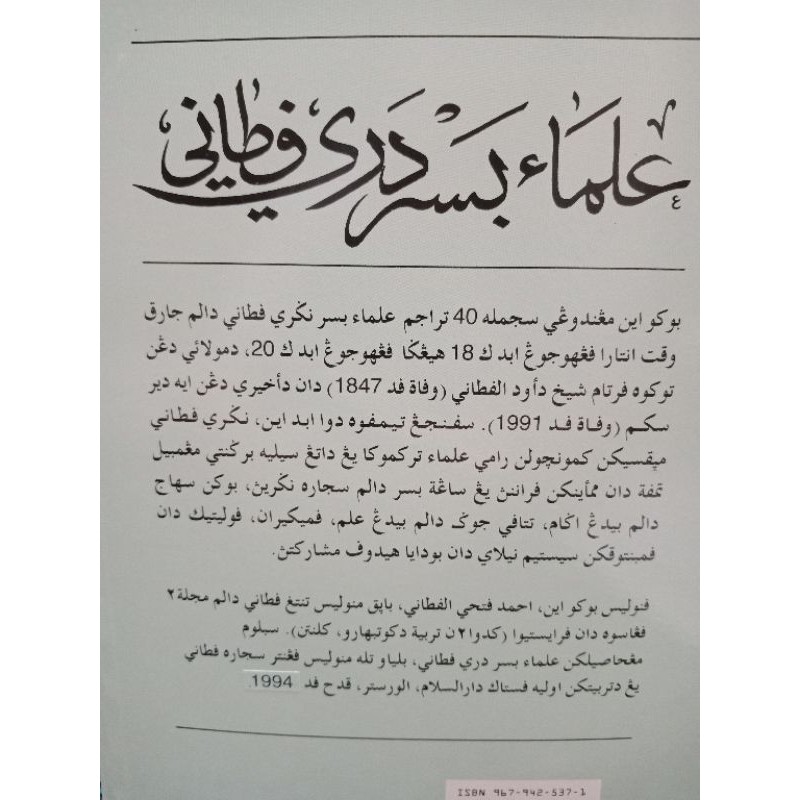 علماء بسر دري فطاني
بوكو اين مڠندوڠي سجمله 40 تراجم علماء بسر نݢري فطاني دالم جارق
وقت انتارا فڠهوجوڠ ابد ك 18 هيڠݢا فڠهوجوڠ ابد ك 20، دمولائي دڠن
توكوه فرتام شيخ دأود الفطاني (وفاة فد 1847) دان دأخيري دڠن ايه دير
سكم (وفاة فد 1991). سفنجڠ تيمفوه دوا ابد اين، نݢري فطاني
مڽقسيكن كمونچولن رامي علماء تركموكا يڠ داتڠ سيليه برݢنتي مڠمبيل
تمفة دان ممأينكن فراننڽ يڠ ساڠة بسر دالم سجاره نݢريڽ، بوكن سهاج
دالم بيدڠ اݢام، تتافي جوݢ دالم بيدڠ علم، فميكيران، فوليتيك دان
فمبنتوقكن سيستيم نيلاي دان بودايا هيدوف مشاركتڽ.
فنوليس بوكو اين، احمد فتحي الفطاني، باڽق منوليس تنتڠ فطاني دالم مجلة٢
ڤڠاسوه دان فرايستيوا (كدوا٢ن تربية دكوتبهارو، كلنتن). سبلوم
مڠحاصيلكن علماء بسر دري فطاني، بلياو تله منوليس فڠنتر سجاره فطاني
يڠ دتربيتكن اوليه فستاك دارالسلام، الورستر، قدح فد 1994.
ISBN 967-942-537-1